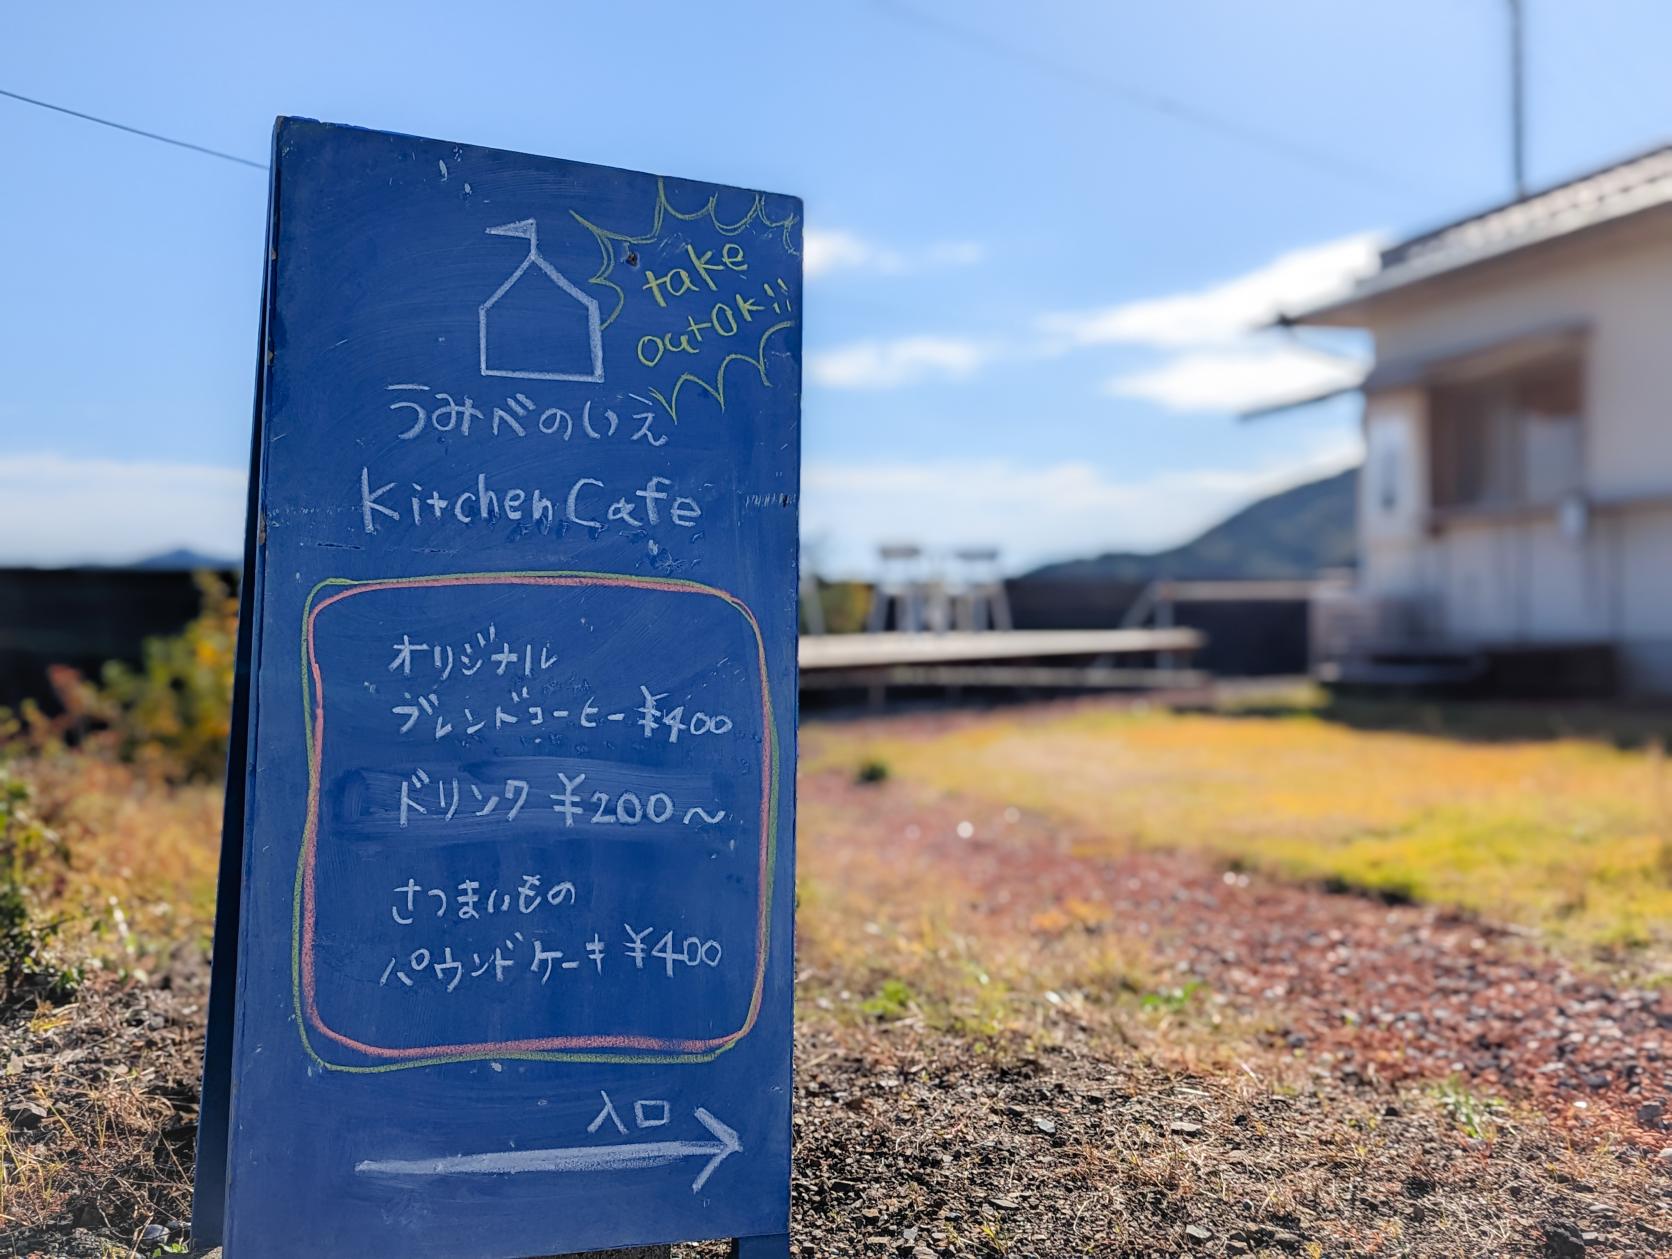 take
out OK!!
うみべのいえ
Kitchen Cafe
オリジナル
ブレンドコーヒー ¥400
ドリンク ¥200〜
さつまいもの
パウンドケーキ ¥400
入口